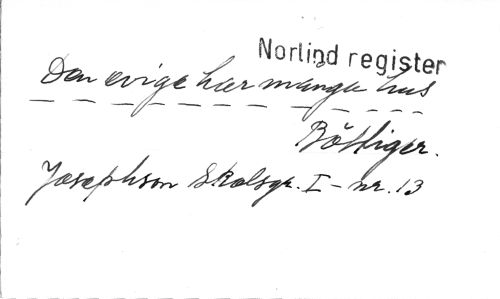 Norlind register
Den evige har många hus
Böttiger.
Josephson Skolsgr. I - nr. 13